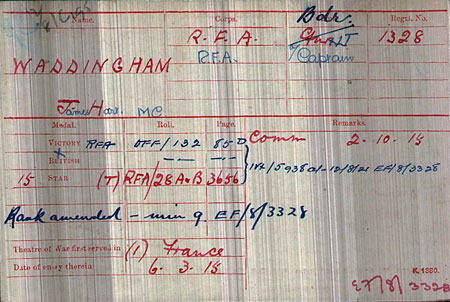 Name. Corps. Bdr. Regtl. No.
R. F. A. 1328
WADDINGHAM R.F.A. T/Captain
James Harr. MC
Medal. Roll. Page. Remarks.
VICTORY RFA OFF/132 85 D Comm 2-10-15
BRITISH — —
15 STAR (T) RFA/28 A&B 3656 EF/8/3328
Rank amended - min 9 EF/8/3328
Theatre of War first served in (1) France
Date of entry therein 6. 3. 15
K. 1380.
EF/8/3328